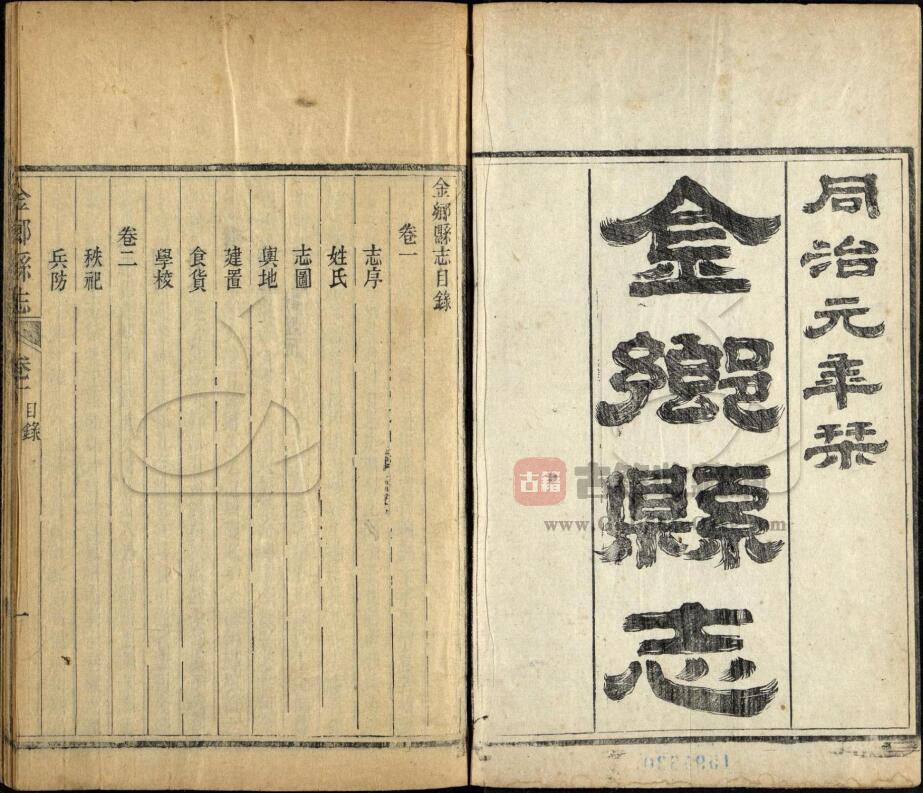 同治元年栞
金鄉縣志
金鄉縣志目錄
卷一
志序
姓氏
志圖
輿地
建置
食貨
學校
卷二
秩祀
兵防
金鄉縣志
卷一
目錄
一
古籍